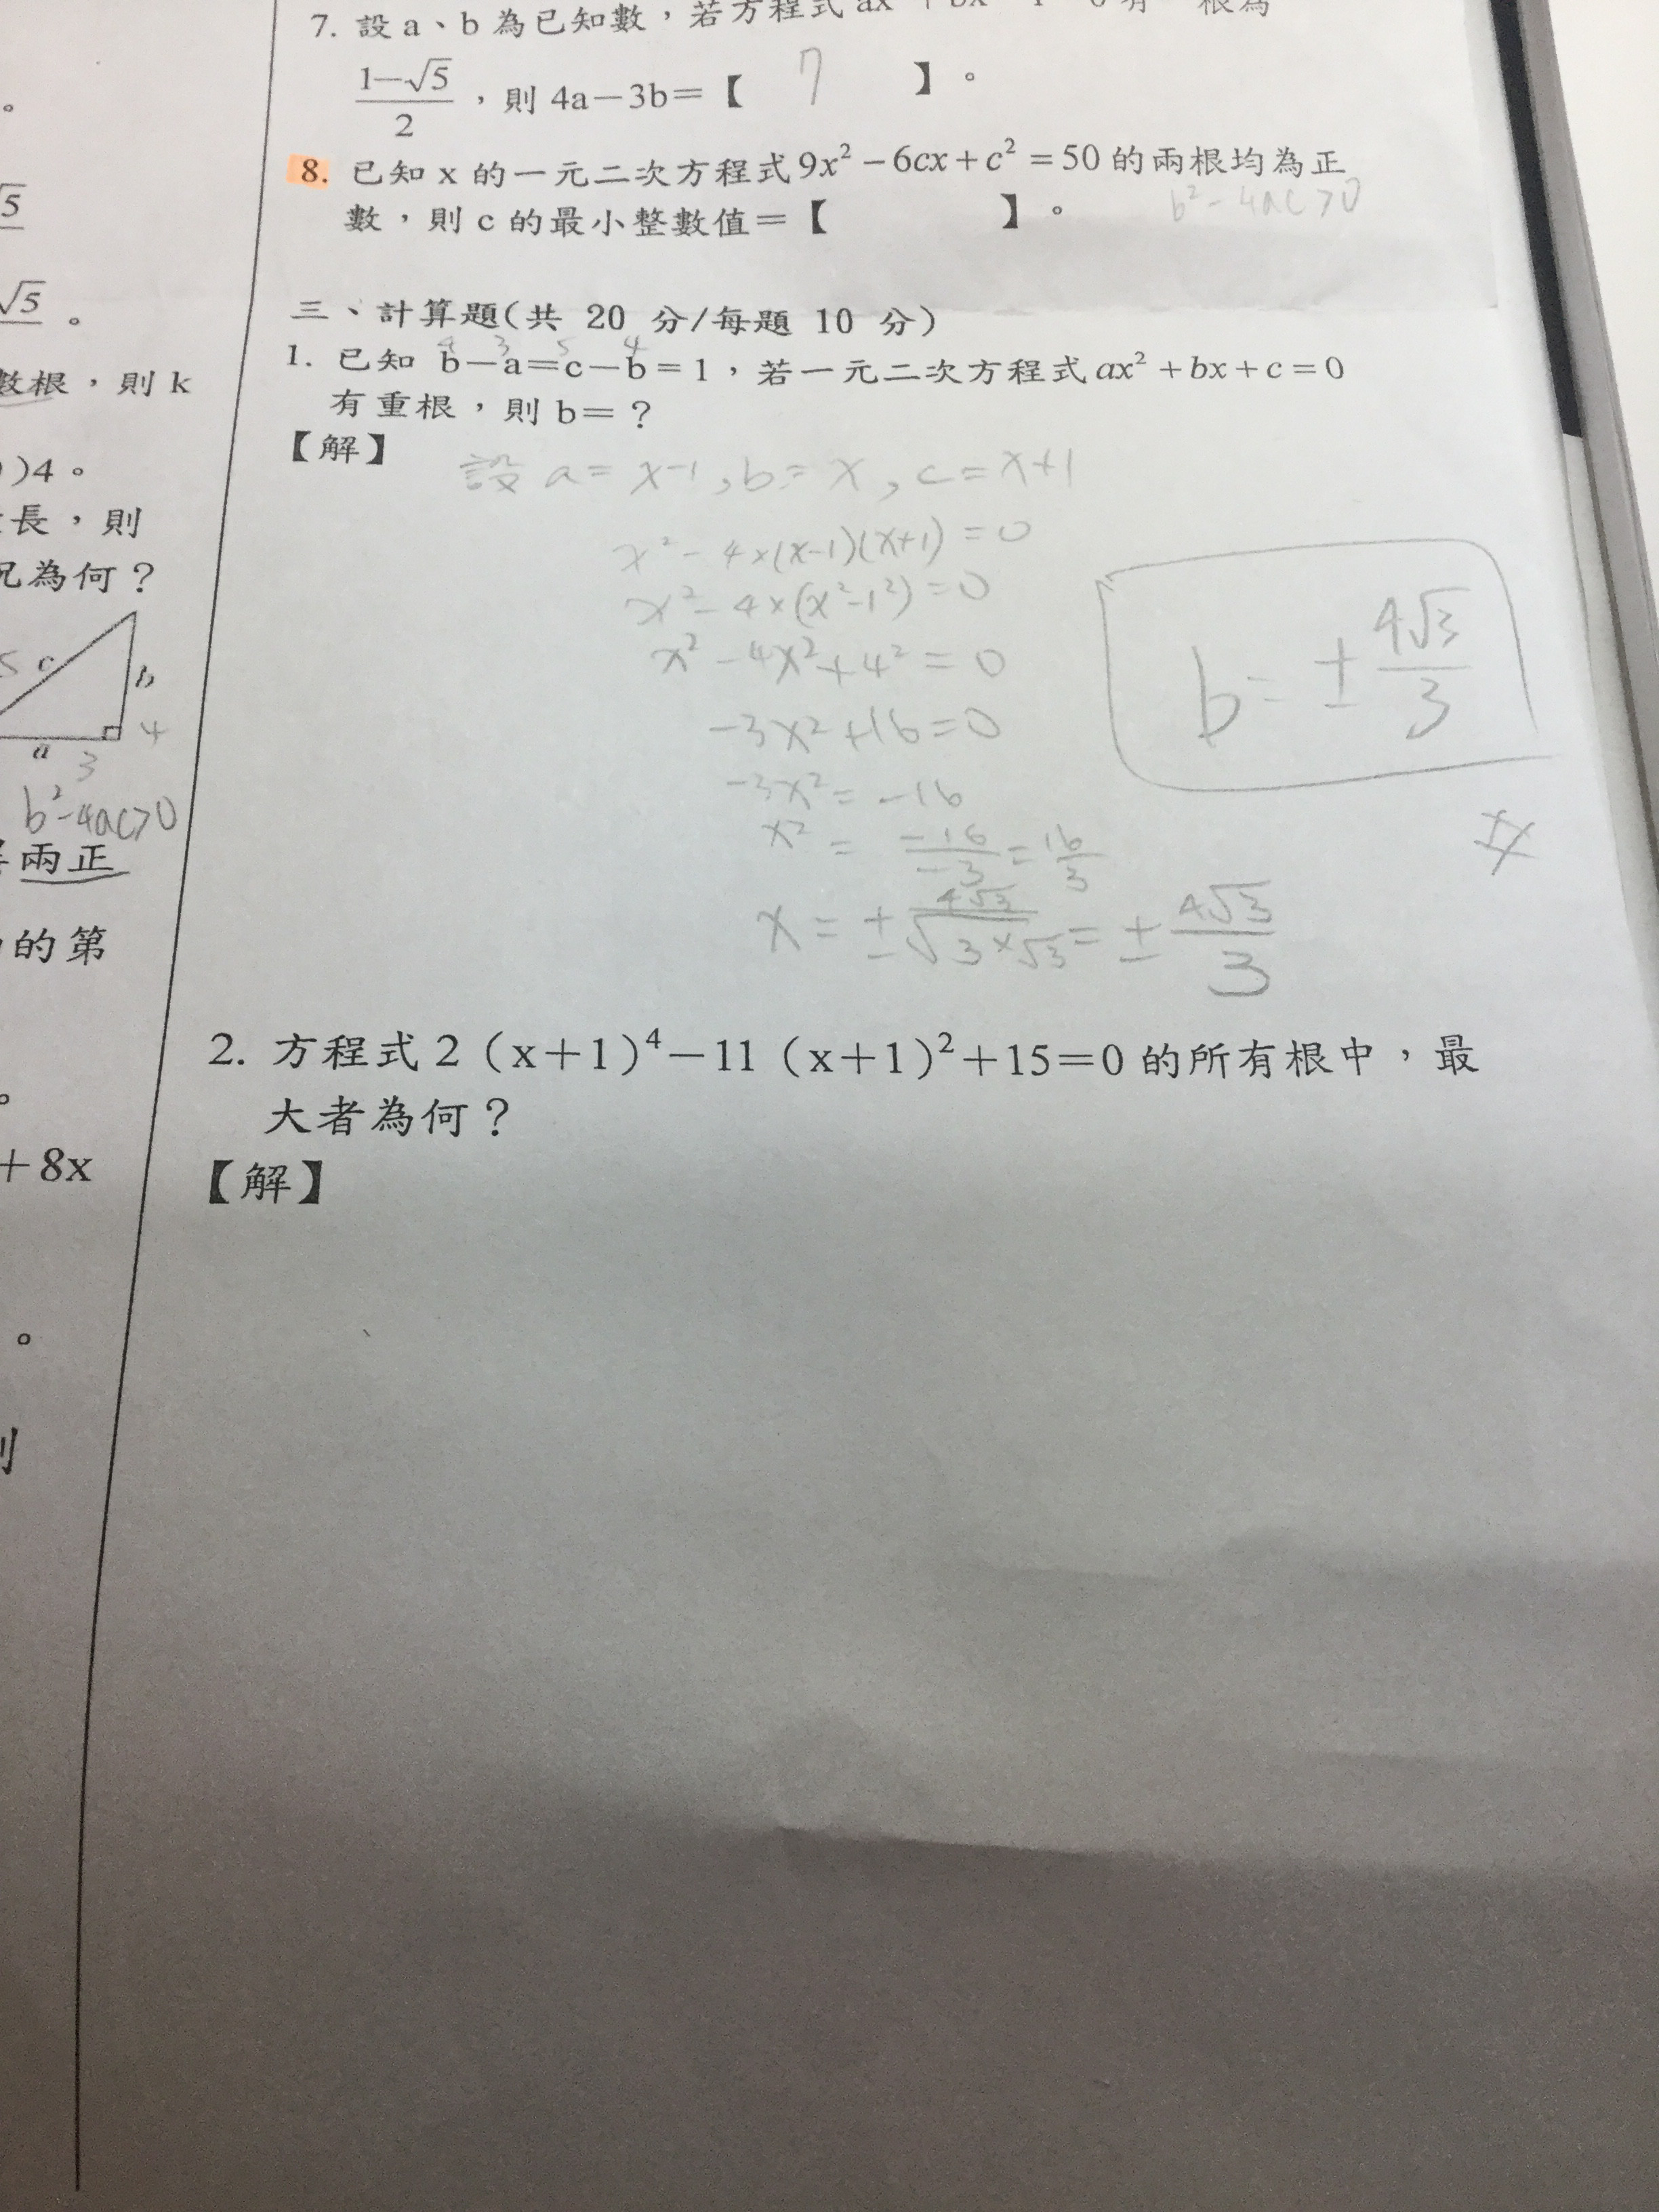 。
√5
√5 。
數根，則 k
)4。
長，則
為何？
5 c b
a 4
3
b²-4ac>0
兩正
的第
。
+8x
。
7. 設 a、b 為已知數，若方程式
1-√5/2，則 4a-3b=【 7 】。
8. 已知 x 的一元二次方程式 9x²-6cx+c²=50 的兩根均為正
數，則 c 的最小整數值=【 】。 b²-4ac>0
三、計算題(共 20 分/每題 10 分)
4 3 5 4
1. 已知 b-a=c-b=1，若一元二次方程式 ax²+bx+c=0
有重根，則 b=？
【解】
設 a=x-1, b=x, c=x+1
x²-4×(x-1)(x+1)=0
x²-4×(x²-1²)=0
x²-4x²+4²=0
-3x²+16=0
-3x²=-16
x²=-16/-3=16/3
x=±4√3/√3×√3=±4√3/3
b=±4√3/3
2. 方程式 2（x+1）⁴-11（x+1）²+15=0 的所有根中，最
大者為何？
【解】